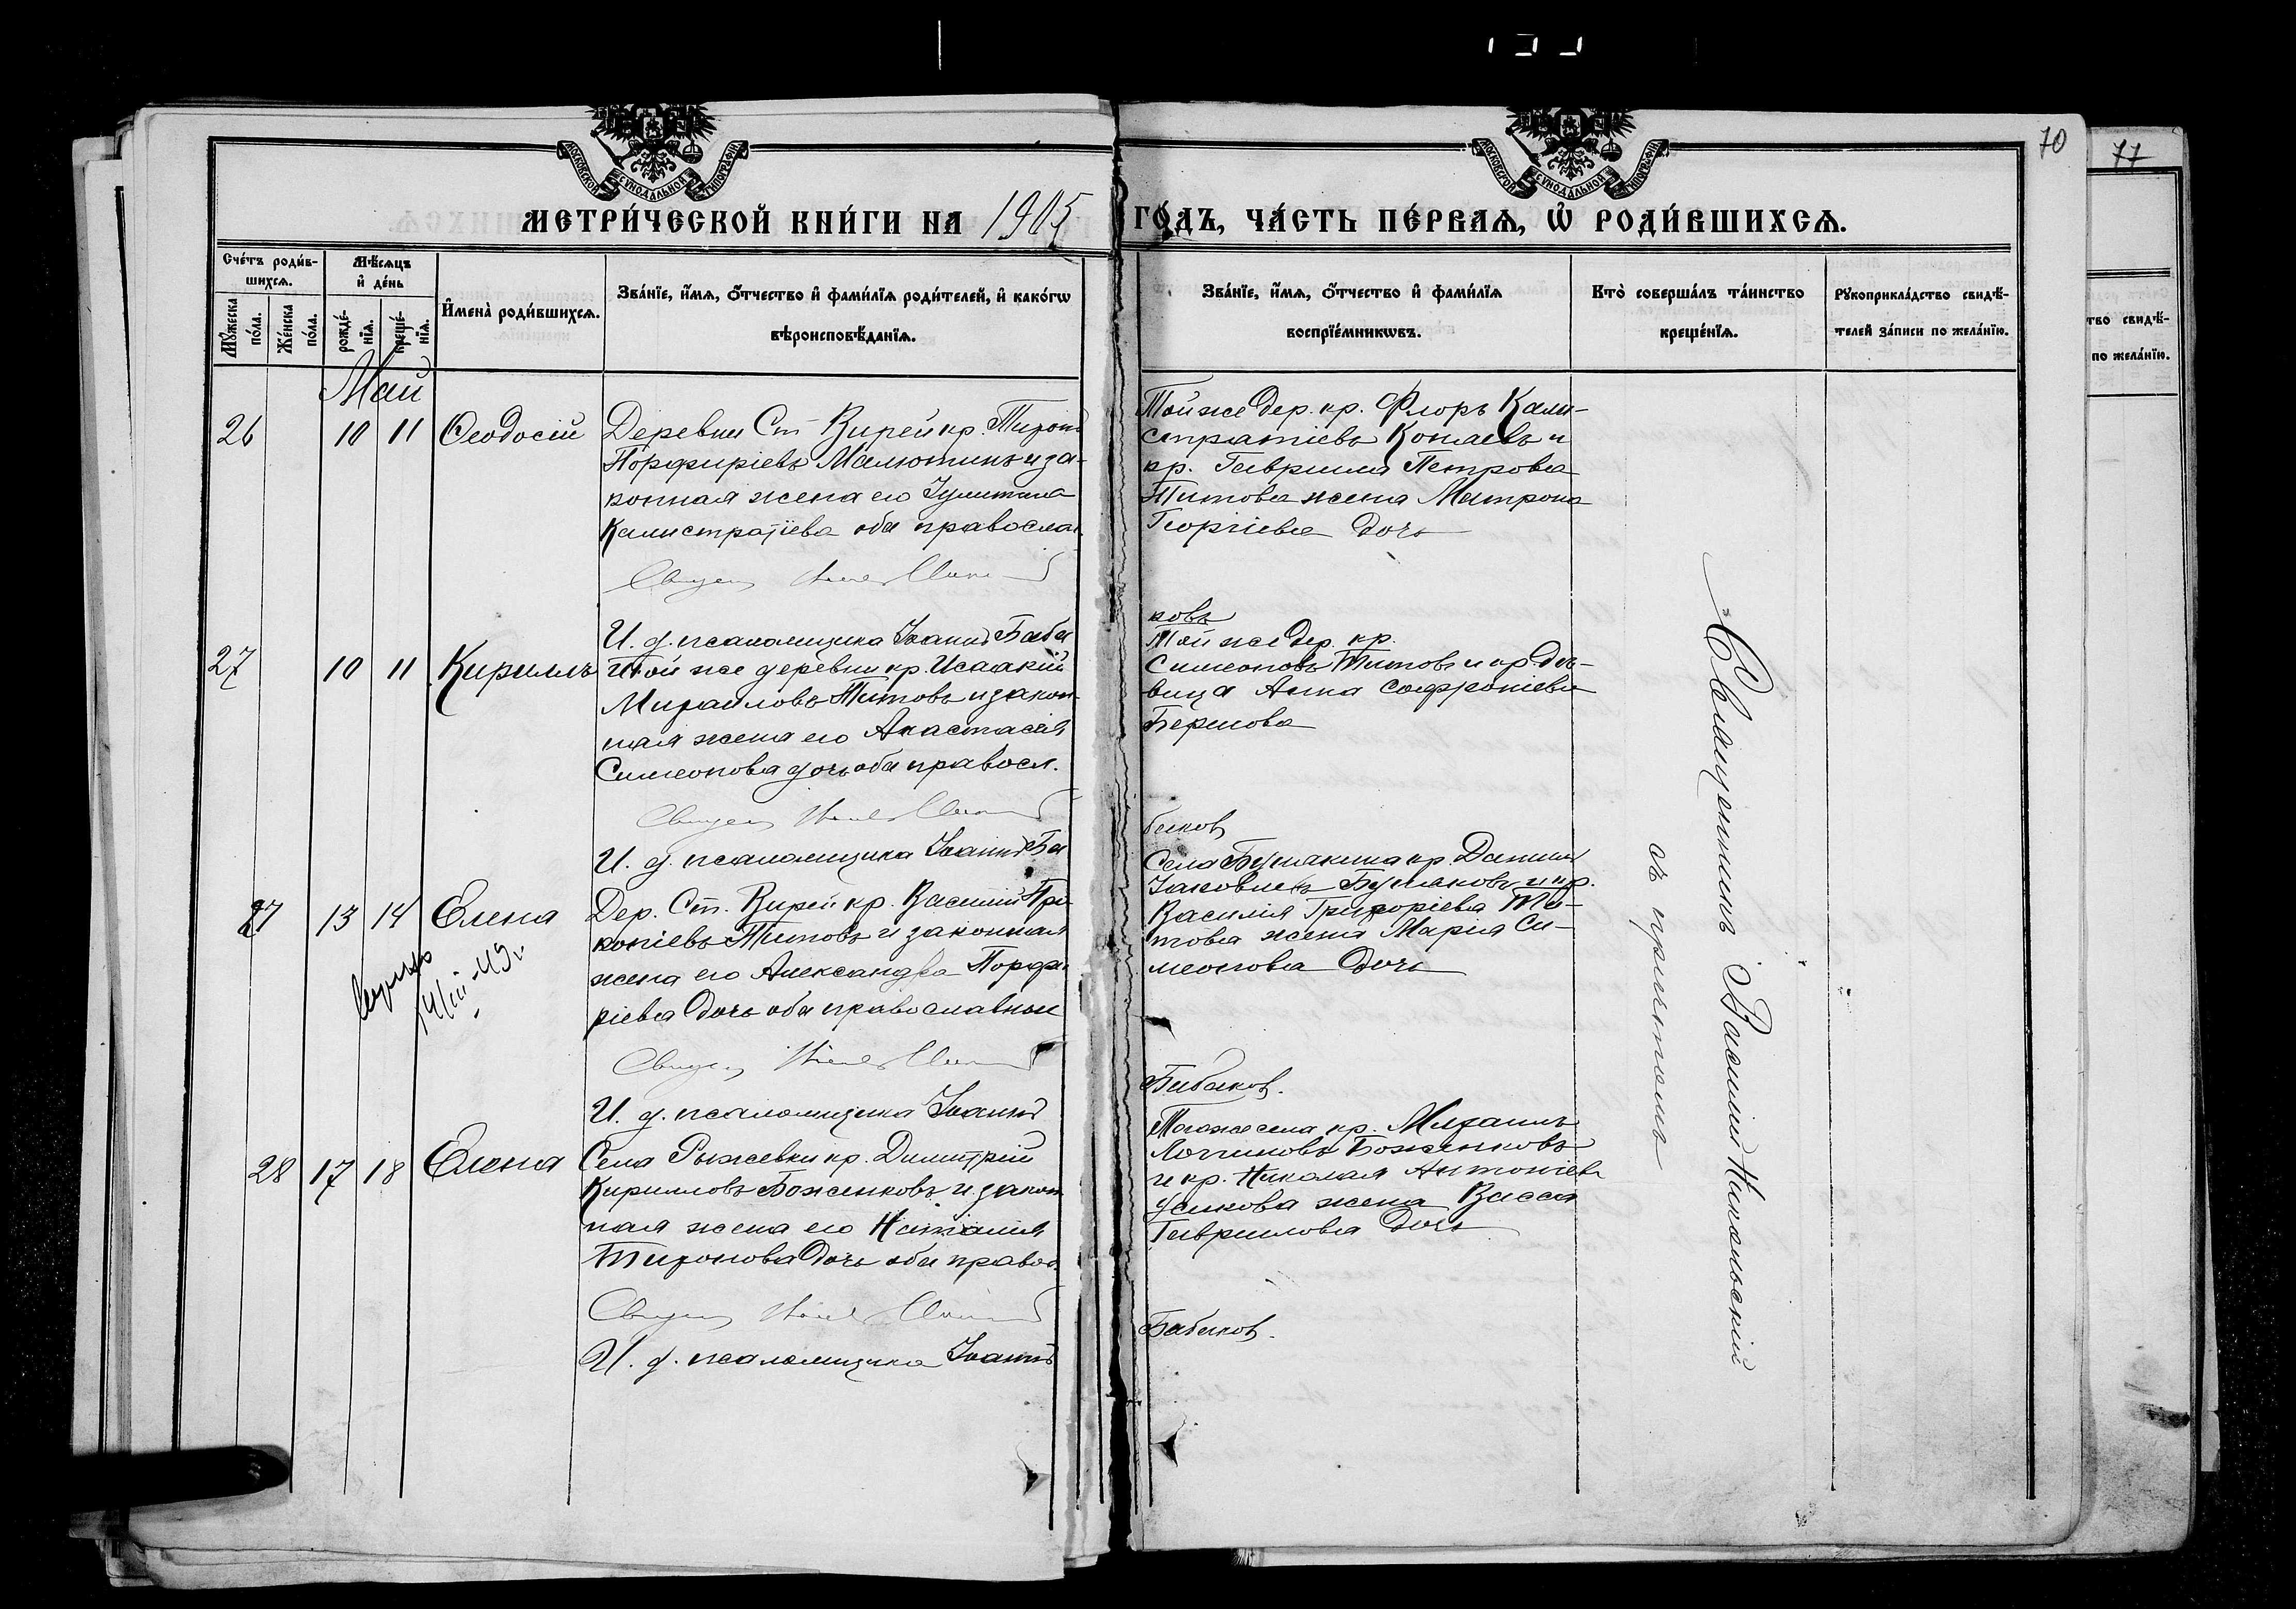 70
77
МОСКОВСКОЙ СѴНОДАЛЬНОЙ ТИПОГРАФІИ
МОСКОВСКОЙ СѴНОДАЛЬНОЙ ТИПОГРАФІИ
МЕТРИ́ЧЕСКОЙ КНИ́ГИ НА 1905 ГО́ДЪ, ЧА́СТЬ ПЕ́РВАѦ, Ѡ҆ РОДИ́ВШИХСѦ.
Сче́тъ роди́в-
шихсѧ.
Мꙋ́жеска
по́ла.
Же́нска
по́ла.
Мѣ́сѧцъ
и҆ де́нь
рожде́-
нїѧ.
креще́-
нїѧ.
И҆мена̀ роди́вшихсѧ.
Зва́нїе, и҆́мѧ, ѻ҆́тчество и҆ фами́лїѧ роди́телей, и҆ како́гѡ
вѣроисповѣ́данїѧ.
Зва́нїе, и҆́мѧ, ѻ҆́тчество и҆ фами́лїѧ
воспрїе́мникѡвъ.
Кто̀ соверша́лъ та́инство
креще́нїѧ.
Рꙋкоприкла́дство свидѣ́-
телей за́писи по жела́нїю.
тво свидѣ́-
по жела́нїю.
Май
26 10 11 Ѳеодосій
Деревни Ст Вирей кр. Тихонъ
Порфиріевъ Малютинъ и за-
конная жена его Іулитта
Калистратіева оба православ.
Тойже дер. кр. Флоръ Кали-
стратіевъ Копаевъ и
кр. Гавриила Петрова
Титова жена Матрона
Георгіева дочь
И. д. псаломщика Іоаннъ Баба
ковъ
27 10 11 Кириллъ
Той же деревни кр. Исаакій
Михаиловъ Титовъ и закон-
ная жена его Анастасія
Симеонова дочь оба правосл.
Той же дер. кр.
Симеоновъ Титовъ и кр. дѣ-
вица Анна Софроніева
И. д. псаломщика Іоаннъ Ба
баков
27 13 14 Елена
Дер. Ст. Вирей кр. Василій Про
копіевъ Титовъ и законная
жена его Александра Порфи
ріева дочь оба православные
Села кр. Даніилъ
Іаковлевъ и кр.
Василія Григоріева Ти-
това жена Марія Си-
меонова дочь
И. д. псаломщика Іоаннъ
Бабаков.
28 17 18 Елена
Села Рыжевки кр. Димитрій
Кирилловъ Боженковъ и закон
ная жена его Наталія
Тихонова дочь оба правос.
Тогоже села кр. Михаилъ
Логгиновъ Боженковъ
и кр. Николая Антоніева
Усикова жена Васса
Гавриилова дочь
И. д. псаломщика Іоаннъ
Бабаков.
Священникъ Василій Никольскій
съ причтомъ